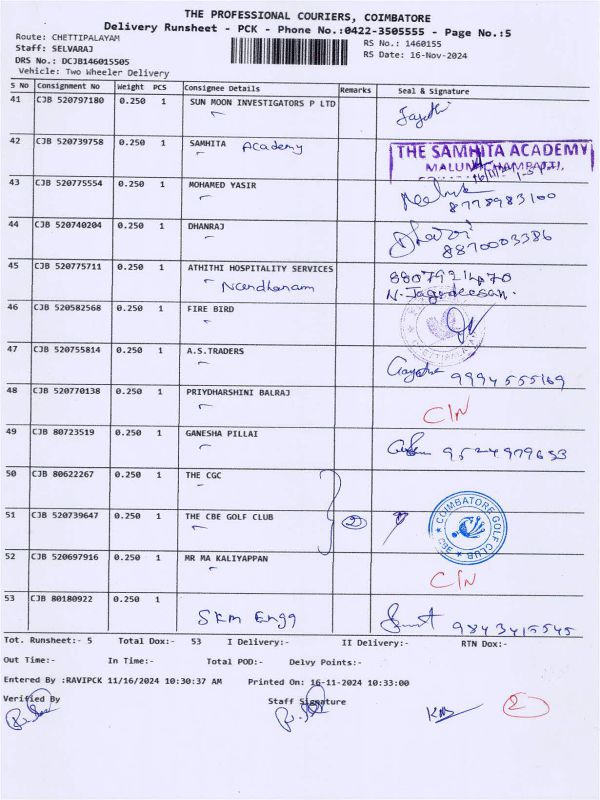 THE PROFESSIONAL COURIERS, COIMBATORE
Delivery Runsheet - PCK - Phone No.:0422-3505555 - Page No.:5
Route: CHETTIPALAYAM
RS No.: 1460155
Staff: SELVARAJ
RS Date: 16-Nov-2024
DRS No.: DCJB146015505
Vehicle: Two Wheeler Delivery
S No Consignment No Weight PCS Consignee Details Remarks Seal & Signature
41 CJB 520797180 0.250 1 SUN MOON INVESTIGATORS P LTD
42 CJB 520739758 0.250 1 SAMHITA Academy
THE SAMHITA ACADEMY
MALUMICHAMPATTI,
43 CJB 520775554 0.250 1 MOHAMED YASIR
8778983100
44 CJB 520740204 0.250 1 DHANRAJ
8870003386
45 CJB 520775711 0.250 1 ATHITHI HOSPITALITY SERVICES 8807921470
N. Jagadeesan.
46 CJB 520582568 0.250 1 FIRE BIRD
47 CJB 520755814 0.250 1 A.S.TRADERS
9994555169
48 CJB 520770138 0.250 1 PRIYDHARSHINI BALRAJ
C/N
49 CJB 80723519 0.250 1 GANESHA PILLAI
9524979653
50 CJB 80622267 0.250 1 THE CGC
51 CJB 520739647 0.250 1 THE CBE GOLF CLUB 2 COIMBATORE GOLF CLUB CBE
52 CJB 520697916 0.250 1 MR MA KALIYAPPAN
C/N
53 CJB 80180922 0.250 1
SKM Engg 9843415545
Tot. Runsheet:- 5 Total Dox:- 53 I Delivery:- II Delivery:- RTN Dox:-
Out Time:- In Time:- Total POD:- Delvy Points:-
Entered By :RAVIPCK 11/16/2024 10:30:37 AM Printed On: 16-11-2024 10:33:00
Verified By Staff Signature
2